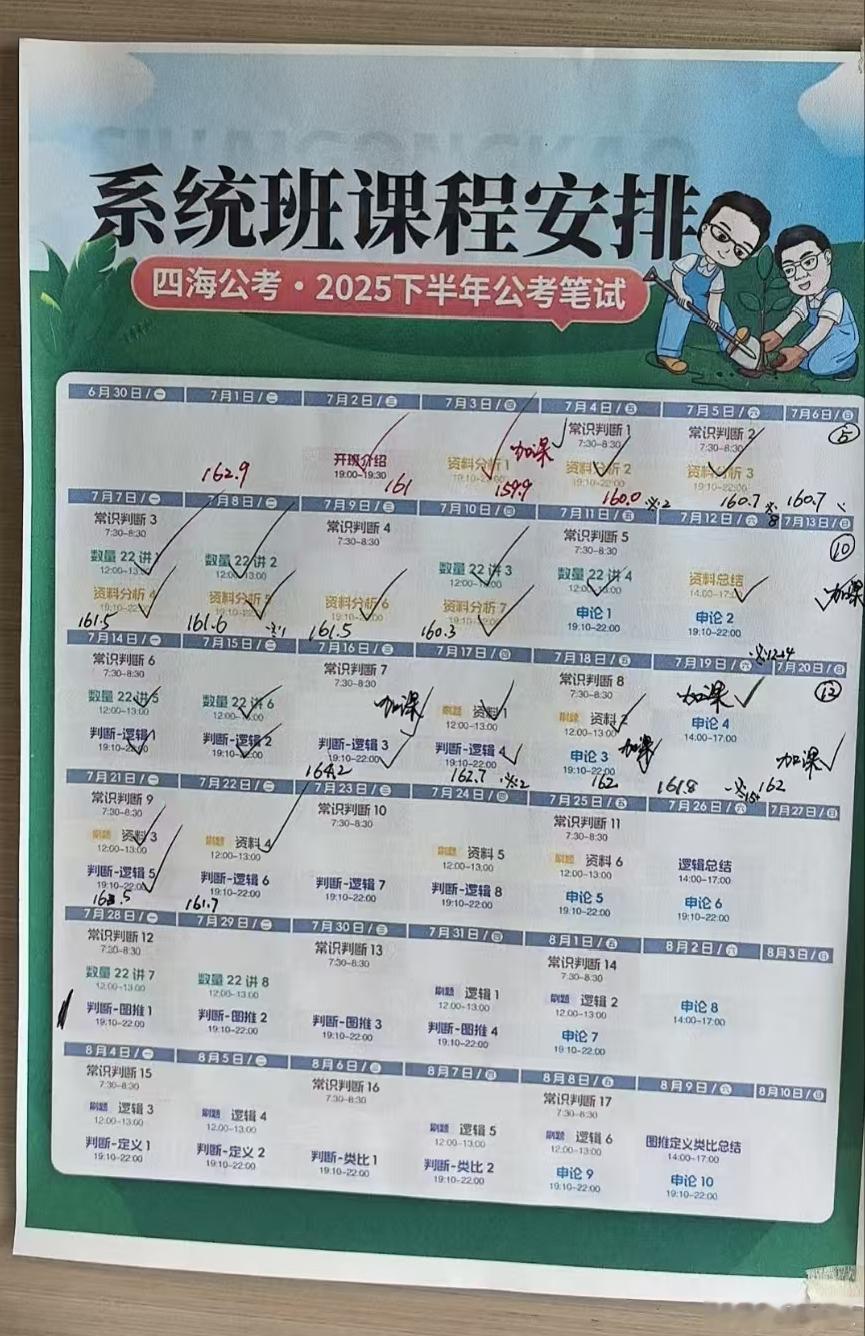 系统班课程安排
四海公考·2025下半年公考笔试
6月30日/一 7月1日/二 7月2日/三 7月3日/四 7月4日/五 7月5日/六 7月6日/日
常识判断 1 常识判断 2 ⑤
7:30-8:30 7:30-8:30
开班介绍 资料分析 1 加课 资料分析 2 资料分析 3
19:00-19:30 19:10-22:00 19:10-22:00 19:10-22:00
162.9 161 159.9 160.0 ※2 160.7 ※8 160.7
7月7日/一 7月8日/二 7月9日/三 7月10日/四 7月11日/五 7月12日/六 7月13日/日
常识判断 3 常识判断 4 常识判断 5 ⑩
7:30-8:30 7:30-8:30 7:30-8:30
数量 22 讲 1 数量 22 讲 2 数量 22 讲 3 数量 22 讲 4 资料总结
12:00-13:00 12:00-13:00 12:00-13:00 12:00-13:00 14:00-17:00
资料分析 4 资料分析 5 资料分析 6 资料分析 7 申论 1 申论 2 加课
19:10-22:00 19:10-22:00 19:10-22:00 19:10-22:00 19:10-22:00 19:10-22:00
161.5 161.6 ※1 161.5 160.3
7月14日/一 7月15日/二 7月16日/三 7月17日/四 7月18日/五 7月19日/六 7月20日/日
常识判断 6 常识判断 7 常识判断 8 ⑫
7:30-8:30 7:30-8:30 7:30-8:30
数量 22 讲 5 数量 22 讲 6 加课 刷题 资料 1 刷题 资料 2 加课 申论 4
12:00-13:00 12:00-13:00 12:00-13:00 12:00-13:00 14:00-17:00
判断-逻辑 1 判断-逻辑 2 判断-逻辑 3 判断-逻辑 4 申论 3 加课 加课
19:10-22:00 19:10-22:00 19:10-22:00 19:10-22:00 19:10-22:00
164.2 162.7 ※2 162 161.8 162
7月21日/一 7月22日/二 7月23日/三 7月24日/四 7月25日/五 7月26日/六 7月27日/日
常识判断 9 常识判断 10 常识判断 11
7:30-8:30 7:30-8:30 7:30-8:30
刷题 资料 3 刷题 资料 4 刷题 资料 5 刷题 资料 6 逻辑总结
12:00-13:00 12:00-13:00 12:00-13:00 12:00-13:00 14:00-17:00
判断-逻辑 5 判断-逻辑 6 判断-逻辑 7 判断-逻辑 8 申论 5 申论 6
19:10-22:00 19:10-22:00 19:10-22:00 19:10-22:00 19:10-22:00 19:10-22:00
161.7
7月28日/一 7月29日/二 7月30日/三 7月31日/四 8月1日/五 8月2日/六 8月3日/日
常识判断 12 常识判断 13 常识判断 14
7:30-8:30 7:30-8:30 7:30-8:30
数量 22 讲 7 数量 22 讲 8 刷题 逻辑 1 刷题 逻辑 2 申论 8
12:00-13:00 12:00-13:00 12:00-13:00 12:00-13:00 14:00-17:00
判断-图推 1 判断-图推 2 判断-图推 3 判断-图推 4 申论 7
19:10-22:00 19:10-22:00 19:10-22:00 19:10-22:00 19:10-22:00
8月4日/一 8月5日/二 8月6日/三 8月7日/四 8月8日/五 8月9日/六 8月10日/日
常识判断 15 常识判断 16 常识判断 17
7:30-8:30 7:30-8:30 7:30-8:30
刷题 逻辑 3 刷题 逻辑 4 刷题 逻辑 5 刷题 逻辑 6 图推定义类比总结
12:00-13:00 12:00-13:00 12:00-13:00 12:00-13:00 14:00-17:00
判断-定义 1 判断-定义 2 判断-类比 1 判断-类比 2 申论 9 申论 10
19:10-22:00 19:10-22:00 19:10-22:00 19:10-22:00 19:10-22:00 19:10-22:00